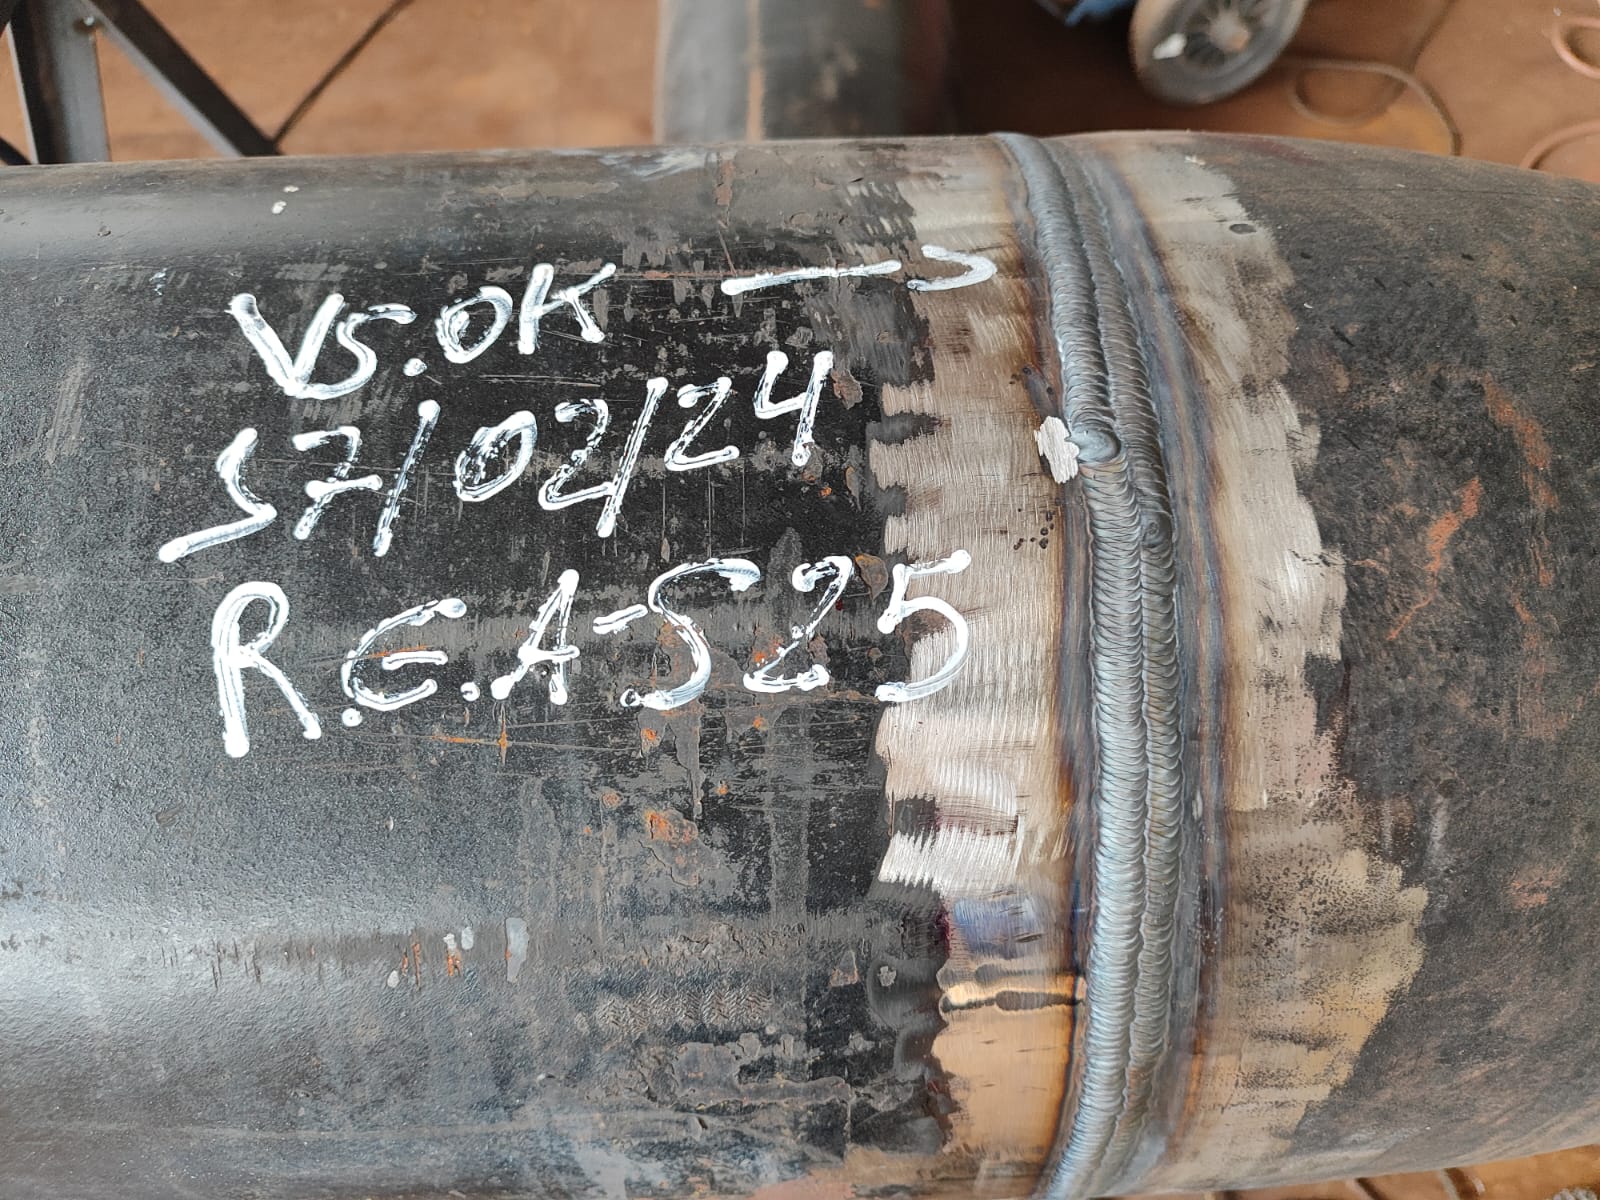 VS.OK →
27/02/24
R.E.A-S25